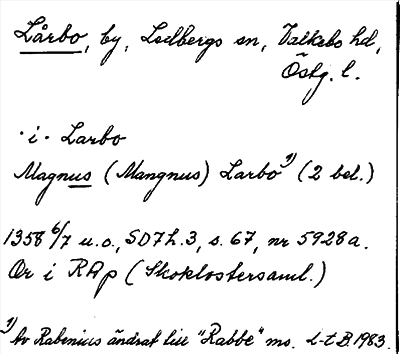 Lårbo, by, Ledbergs sn, Valkebo hd,
Östg. l.
· i · Larbo
Magnus (Mangnus) Larbo 1) (2 bel.)
1358 6/7 u.o., SD7h.3, s. 67, nr 5928a.
Or i RAp (Skoklostersaml.)
1) Av Rabenius ändrat till "Rabbe" ms. L-t B 1983.